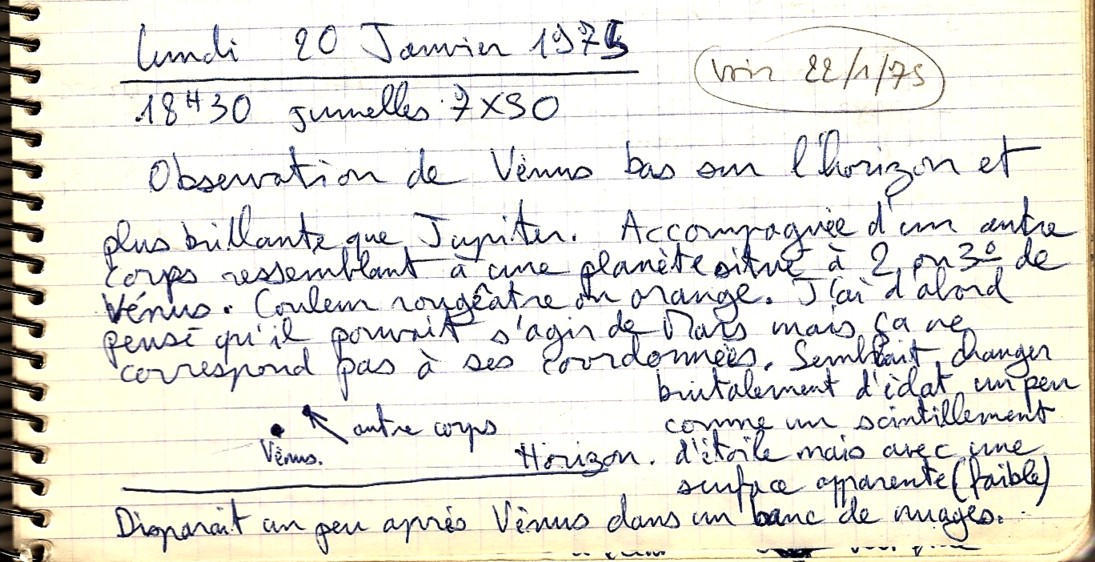 Lundi 20 Janvier 1975
voir 22/1/75
18H30 jumelles 7X50
Observation de Vénus bas sur l'horizon et
plus brillante que Jupiter. Accompagnée d'un autre
corps ressemblant à une planète situé à 2 ou 3° de
Vénus. Couleur rougeâtre ou orange. J'ai d'abord
pensé qu'il pouvait s'agir de Mars mais ça ne
correspond pas à ses coordonnées. Semblait changer
brutalement d'éclat un peu
comme un scintillement
d'étoile mais avec une
surface apparente (faible)
autre corps
Vénus.
Horizon.
Disparait un peu après Vénus dans un banc de nuages.